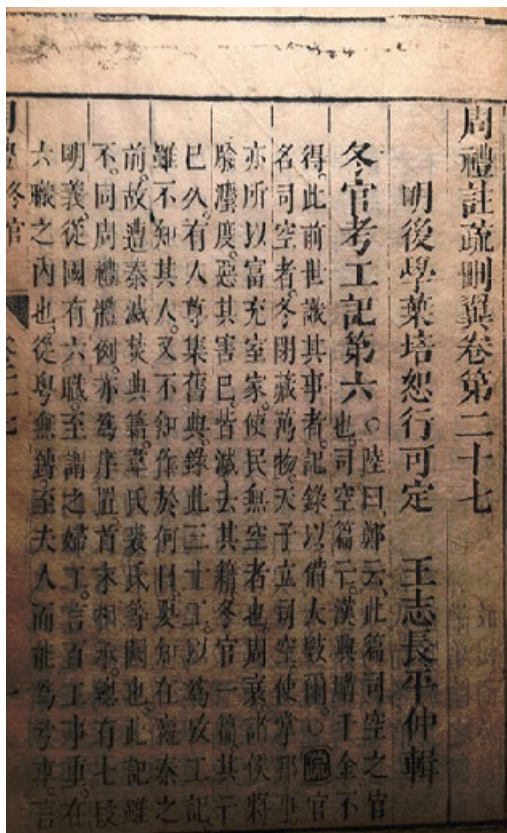 周禮註疏刪翼卷第二十七
明後學葉培恕行可定　王志長平仲輯
冬官考工記第六
○陸曰鄭云此篇司空之官
也司空篇亡漢興購千金不
得此前世識其事者記錄以備大數爾○疏官
名司空者冬閉藏萬物天子立司空使掌邦事
亦所以富充室家使民無空者也周衰諸侯將
隳灋度惡其害已皆滅去其籍冬官一篇其亡
已久有人尊集舊典錄此三十工以爲攷工記
雖不知其人又不知作於何日要知在於秦之
前故遭秦滅焚典籍韋氏裘氏等闕也此記雖
不同周禮體例亦爲序置首末相承總有七段
明義從國有六職至謂之婦工言百工事重在
六職之內也從粵無鎛至夫人而能爲弓車言
周禮冬官